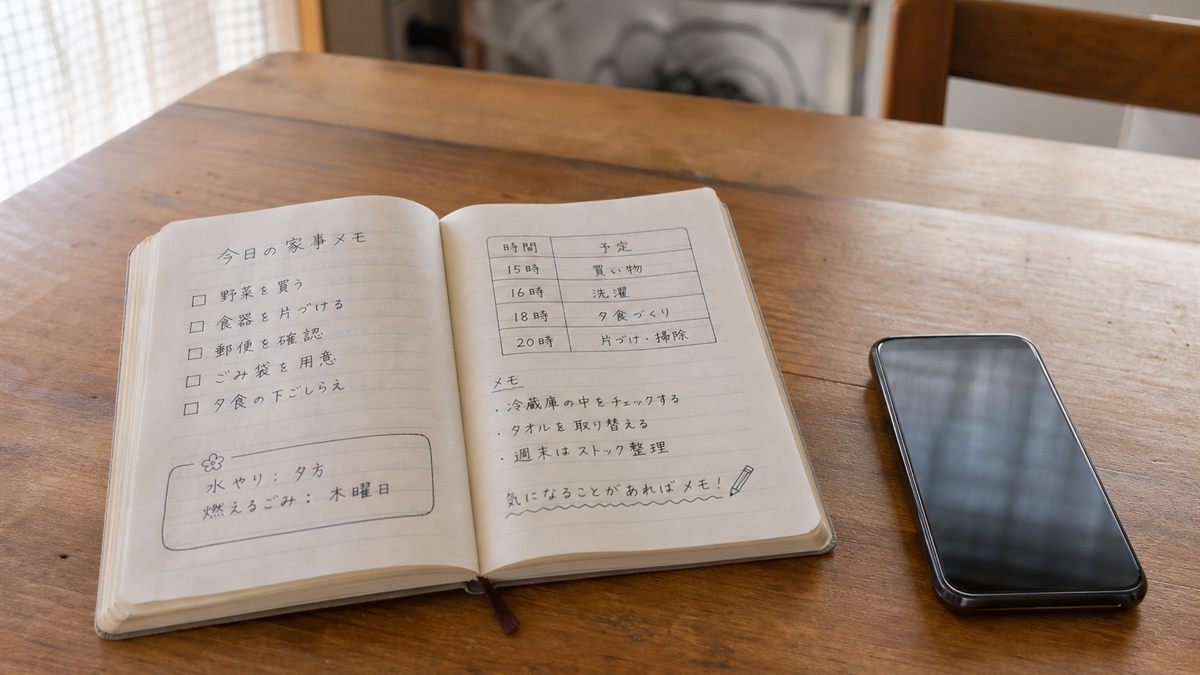 今日の家事メモ
□ 野菜を買う
□ 食器を片づける
□ 郵便を確認
□ ごみ袋を用意
□ 夕食の下ごしらえ
水やり： 夕方
燃えるごみ： 木曜日
時間 予定
15時 買い物
16時 洗濯
18時 夕食づくり
20時 片づけ・掃除
メモ
・冷蔵庫の中をチェックする
・タオルを取り替える
・週末はストック整理
気になることがあればメモ！